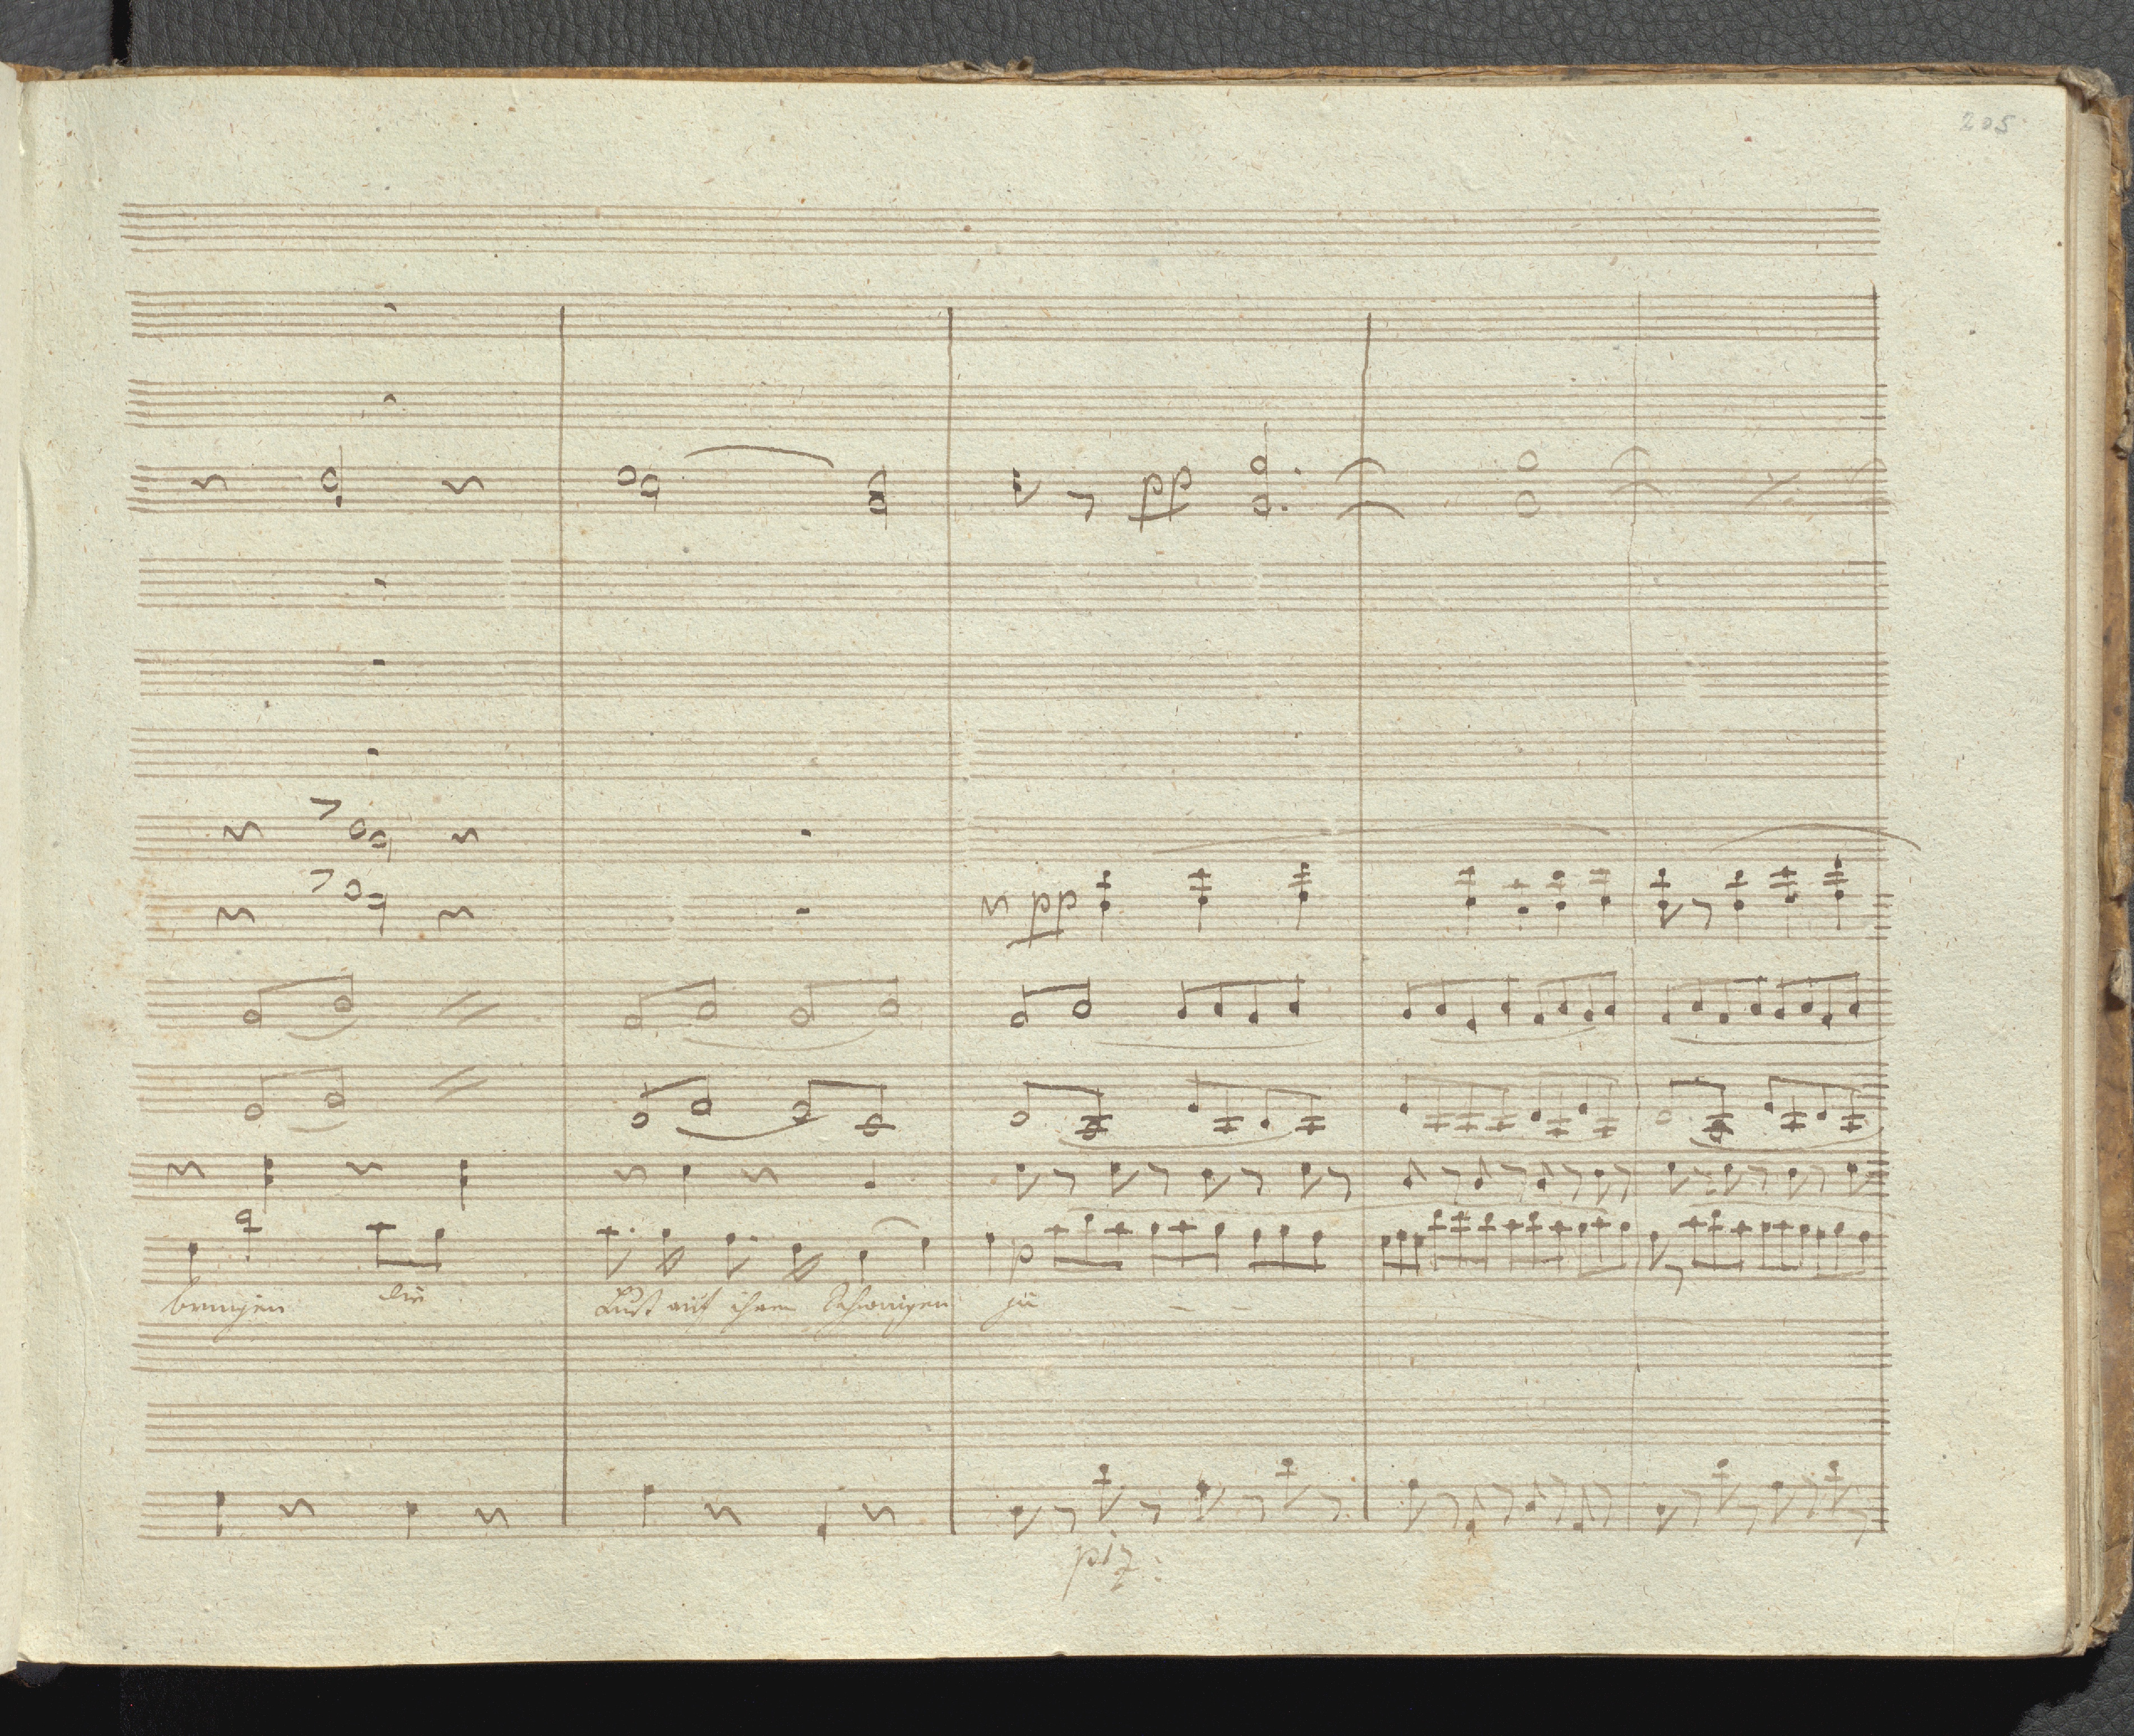 205
pp
pp
p
bringen die Lust auf ihren Schwingen zu - -
piz: